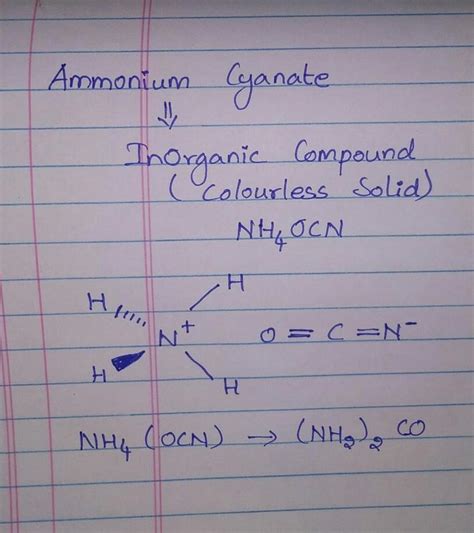 Ammonium Cyanate
⇓
InOrganic Compound
(Colourless Solid)
NH₄OCN
H
H
N⁺ O = C = N⁻
H
H
NH₄ (OCN) → (NH₂)₂ CO